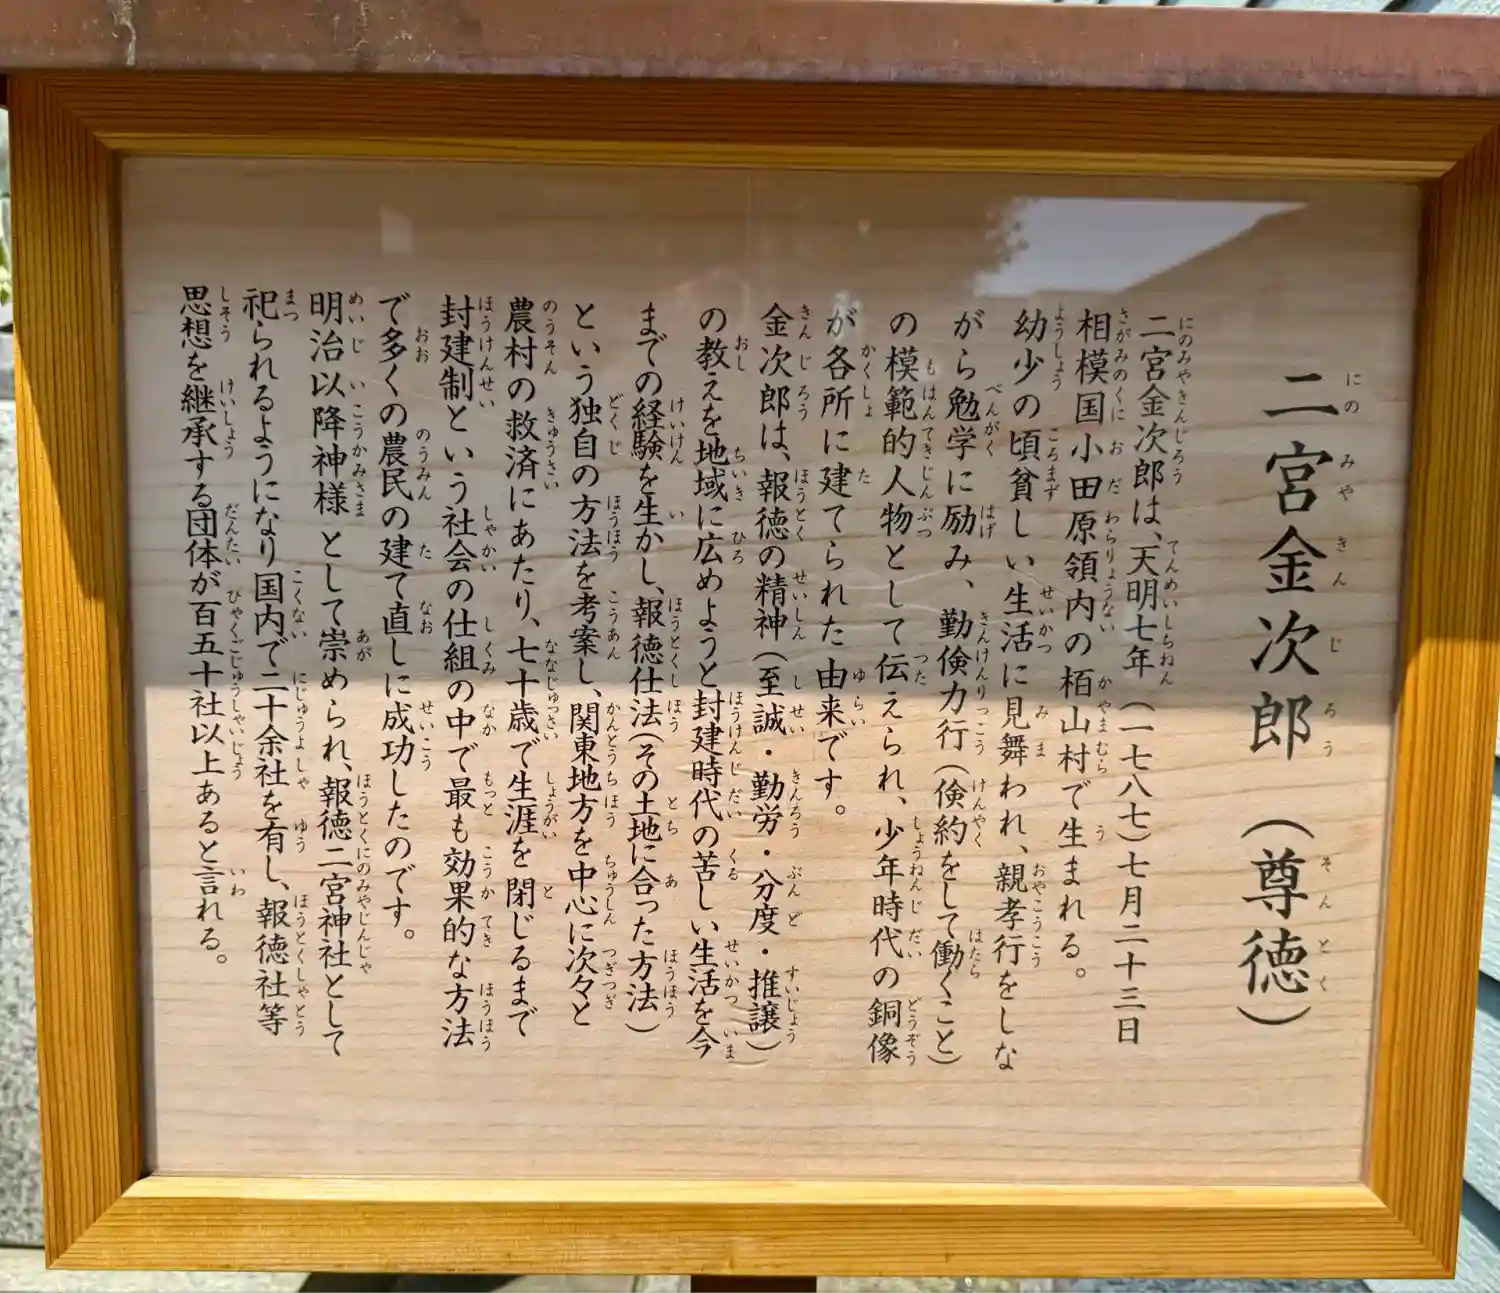 二宮金次郎（尊徳）
二宮金次郎は、天明七年（一七八七）七月二十三日
相模国小田原領内の栢山村で生まれる。
幼少の頃貧しい生活に見舞われ、親孝行をしな
がら勉学に励み、勤倹力行（倹約をして働くこと）
の模範的人物として伝えられ、少年時代の銅像
が各所に建てられた由来です。
金次郎は、報徳の精神（至誠・勤労・分度・推譲）
の教えを地域に広めようと封建時代の苦しい生活を今
までの経験を生かし、報徳仕法（その土地に合った方法）
という独自の方法を考案し、関東地方を中心に次々と
農村の救済にあたり、七十歳で生涯を閉じるまで
封建制という社会の仕組の中で最も効果的な方法
で多くの農民の建て直しに成功したのです。
明治以降神様として崇められ、報徳二宮神社として
祀られるようになり国内で二十余社を有し、報徳社等
思想を継承する団体が百五十社以上あると言れる。